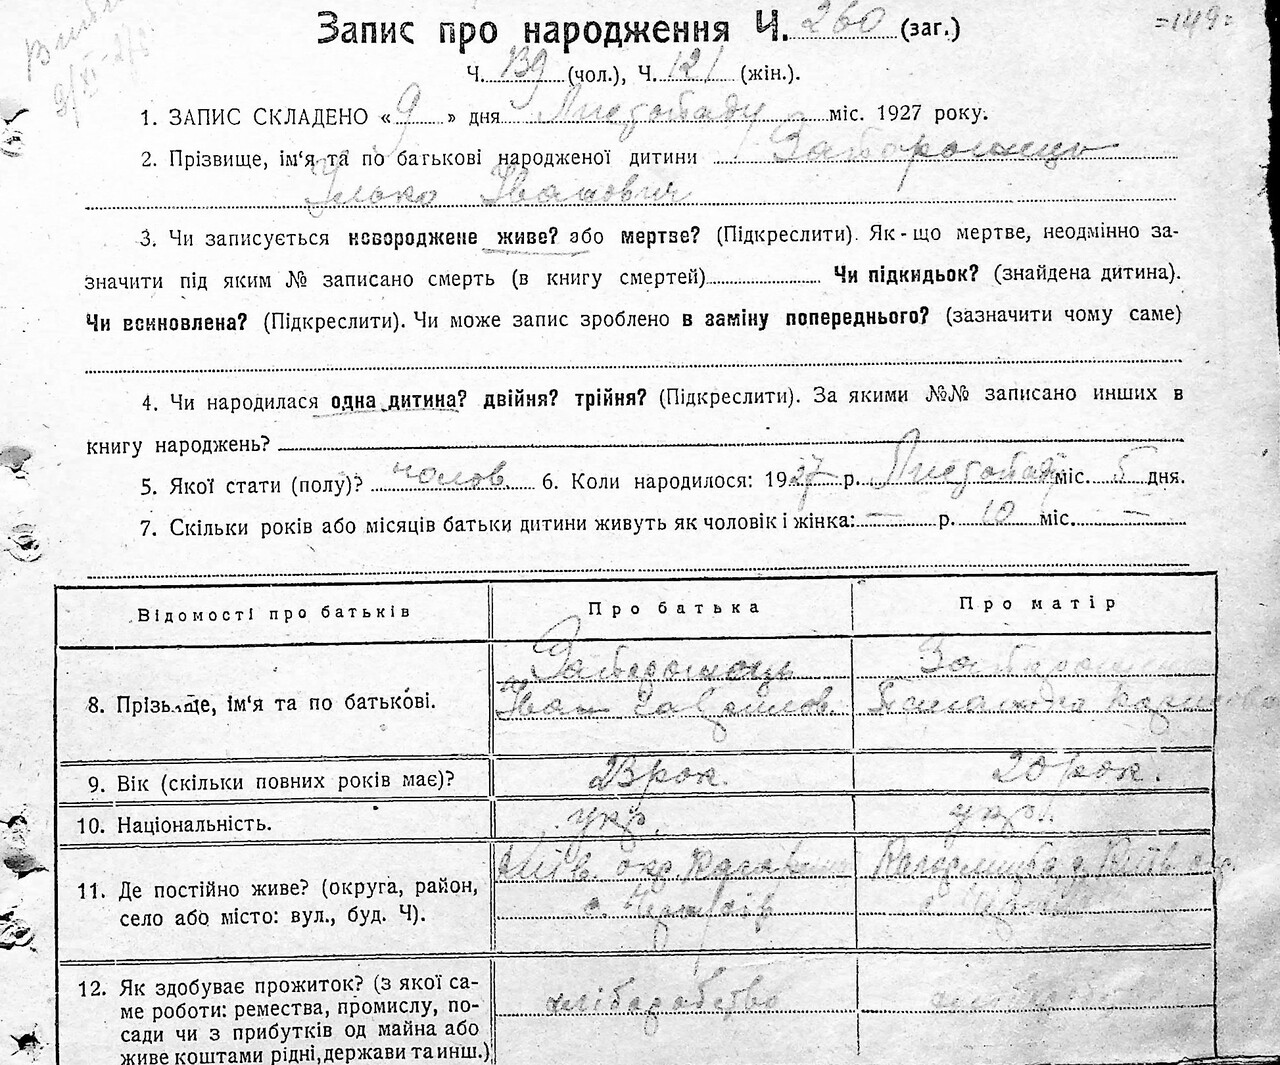 Запис про народження Ч. 260 (заг.)
=149=
Ч. 139 (чол.), Ч. 121 (жін.).
1. ЗАПИС СКЛАДЕНО « 9 » дня Листопаду міс. 1927 року.
2. Прізвище, ім'я та по батькові народженої дитини Запорожець
Ілько Іванович
3. Чи записується новороджене живе? або мертве? (Підкреслити). Як-що мертве, неодмінно за-
значити під яким № записано смерть (в книгу смертей) Чи підкидьок? (знайдена дитина).
Чи всиновлена? (Підкреслити). Чи може запис зроблено в заміну попереднього? (зазначити чому саме)
4. Чи народилася одна дитина? двійня? трійня? (Підкреслити). За якими №№ записано инших в
книгу народжень?
5. Якої стати (полу)? чолов. 6. Коли народилося: 1927 р. Листопаду міс. 5 дня.
7. Скільки років або місяців батьки дитини живуть як чоловік і жінка: — р. 10 міс. —
Відомості про батьків Про батька Про матір
8. Прізвище, ім'я та по батькові.
Запорожець
Іван Гаврилов.
Запорожець
9. Вік (скільки повних років має)? 23 рок. 20 рок.
10. Національність. укр. укр.
11. Де постійно живе? (округа, район,
село або місто: вул., буд. Ч).
Київ. окр.
с.
Київ. окр.
с.
12. Як здобуває прожиток? (з якої са-
ме роботи: ремества, промислу, по-
сади чи з прибутків од майна або
живе коштами рідні, держави та инш.)
хліборобство